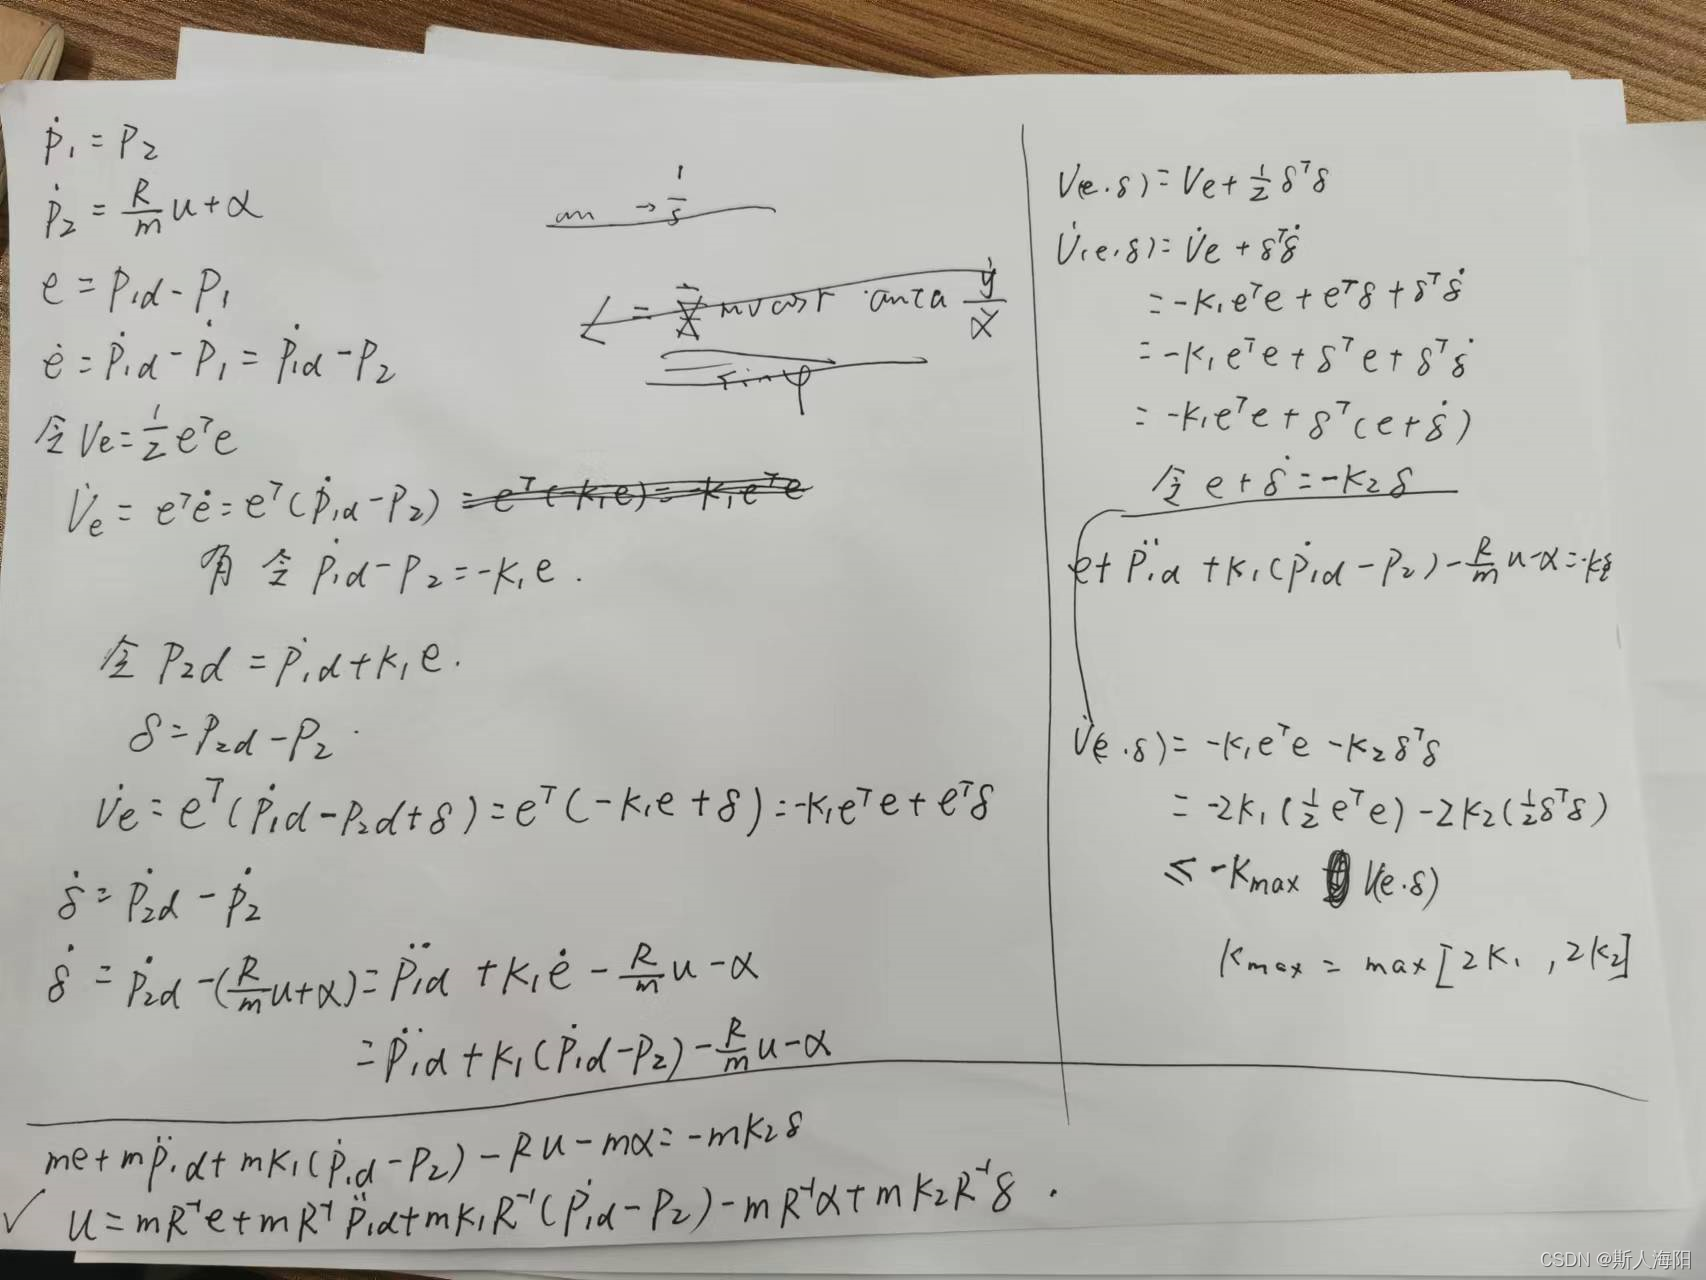 ṗ₁ = P₂
ṗ₂ = R/m u + α
e = P₁d - P₁
ė = Ṗ₁d - Ṗ₁ = Ṗ₁d - P₂
令 Ve = 1/2 eᵀe
V̇e = eᵀė = eᵀ(Ṗ₁d - P₂) = eᵀ(-K₁e) = -K₁eᵀe
有 令 Ṗ₁d - P₂ = -K₁e .
令 P₂d = Ṗ₁d + K₁e .
δ = P₂d - P₂ .
V̇e = eᵀ(Ṗ₁d - P₂d + δ) = eᵀ(-K₁e + δ) = -K₁eᵀe + eᵀδ
δ̇ = Ṗ₂d - Ṗ₂
δ̇ = Ṗ₂d - (R/m u + α) = P̈₁d + K₁ė - R/m u - α
= P̈₁d + K₁(Ṗ₁d - P₂) - R/m u - α
an → 1/s
sin φ
V(e.δ) = Ve + 1/2 δᵀδ
V̇(e.δ) = V̇e + δᵀδ̇
= -K₁eᵀe + eᵀδ + δᵀδ̇
= -K₁eᵀe + δᵀe + δᵀδ̇
= -K₁eᵀe + δᵀ(e + δ̇)
令 e + δ̇ = -K₂δ
e + P̈₁d + K₁(Ṗ₁d - P₂) - R/m u - α = -K₂δ
V̇(e.δ) = -K₁eᵀe - K₂δᵀδ
= -2K₁(1/2 eᵀe) - 2K₂(1/2 δᵀδ)
≤ -Kmax V(e.δ)
Kmax = max[2K₁ , 2K₂]
me + mP̈₁d + mK₁(Ṗ₁d - P₂) - Ru - mα = -mK₂δ
✓ u = mR⁻¹e + mR⁻¹P̈₁d + mK₁R⁻¹(Ṗ₁d - P₂) - mR⁻¹α + mK₂R⁻¹δ .
CSDN @斯人海阳